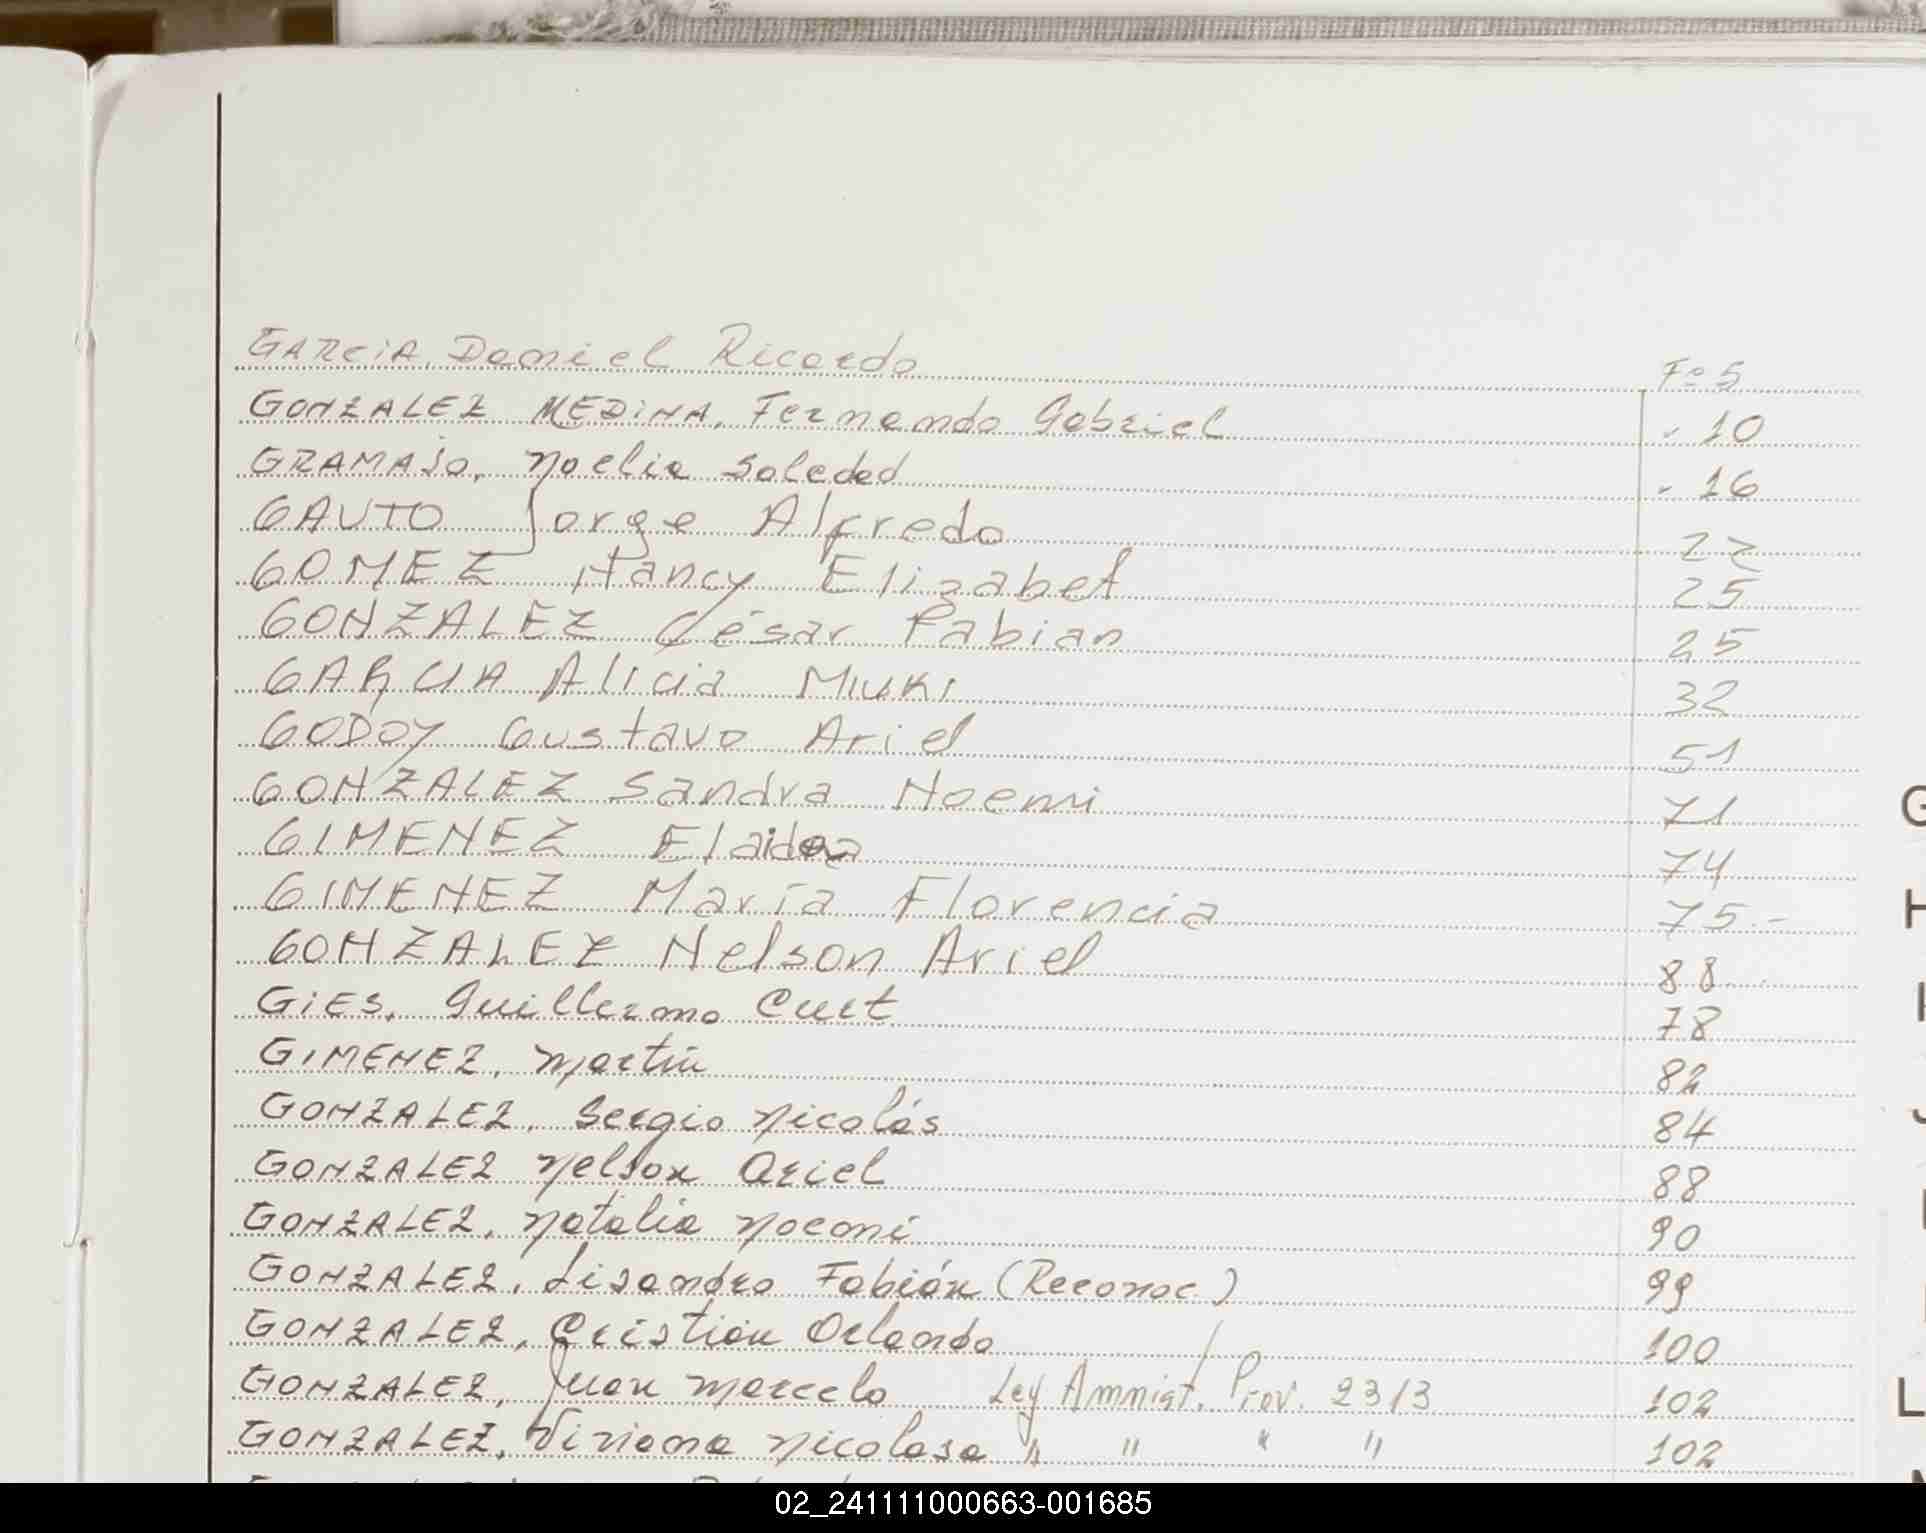 GARCIA, Daniel Ricardo Fº 5
GONZALEZ MEDINA, Fernando Gabriel " 10
GRAMAJO, Noelia Soledad " 16
GAUTO Jorge Alfredo 22
GOMEZ Nancy Elizabet 25
GONZALEZ César Fabian 25
GARCIA Alicia Miuki 32
GODOY Gustavo Ariel 51
GONZALEZ Sandra Noemi 71
GIMENEZ 74
GIMENEZ María Florencia 75.-
GONZALEZ Nelson Ariel 88
GIES, Guillermo Curt 78
GIMENEZ, Martín 82
GONZALEZ, Sergio Nicolás 84
GONZALEZ Nelson Ariel 88
GONZALEZ, Natalia Noemi 90
GONZALEZ, Lisandro Fabián (Reconoc.) 99
GONZALEZ, Cristian Orlando 100
GONZALEZ, Juan Marcelo Ley Amnist. Prov. 2313 102
GONZALEZ, Viviana Nicolasa " " " " 102
G
H
J
L
02_241111000663-001685